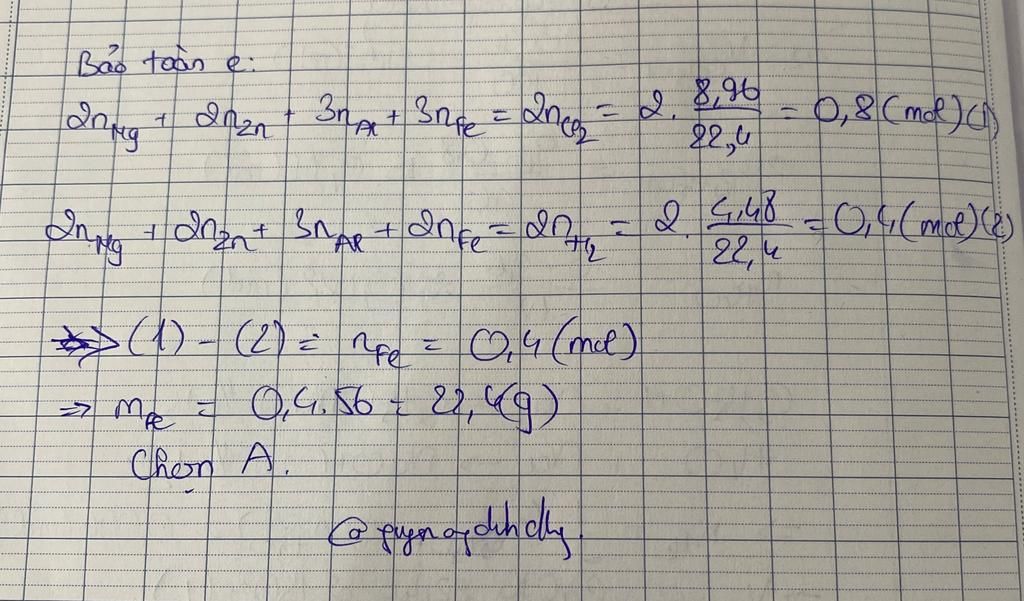 Bảo toàn e:
2nMg + 2nZn + 3nAl + 3nFe = 2nCl2 = 2. 8,96/22,4 = 0,8 (mol) (1)
2nMg + 2nZn + 3nAl + 2nFe = 2nH2 = 2. 4,48/22,4 = 0,4 (mol) (2)
=> (1) - (2) = nFe = 0,4 (mol)
=> mFe = 0,4.56 = 22,4(g)
Chọn A.